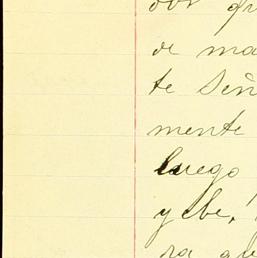 por qu
de ma
te Señ
mente
luego
y ebe,
ra qu